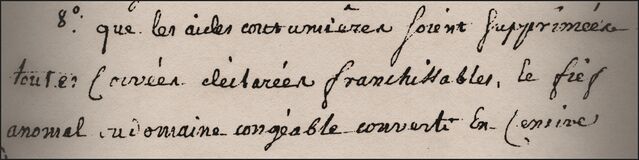 8º. que les aides coutumières soient supprimées
toutes Corvées déclarées franchissables, le fief
anomal ou domaine congéable converti En Censive